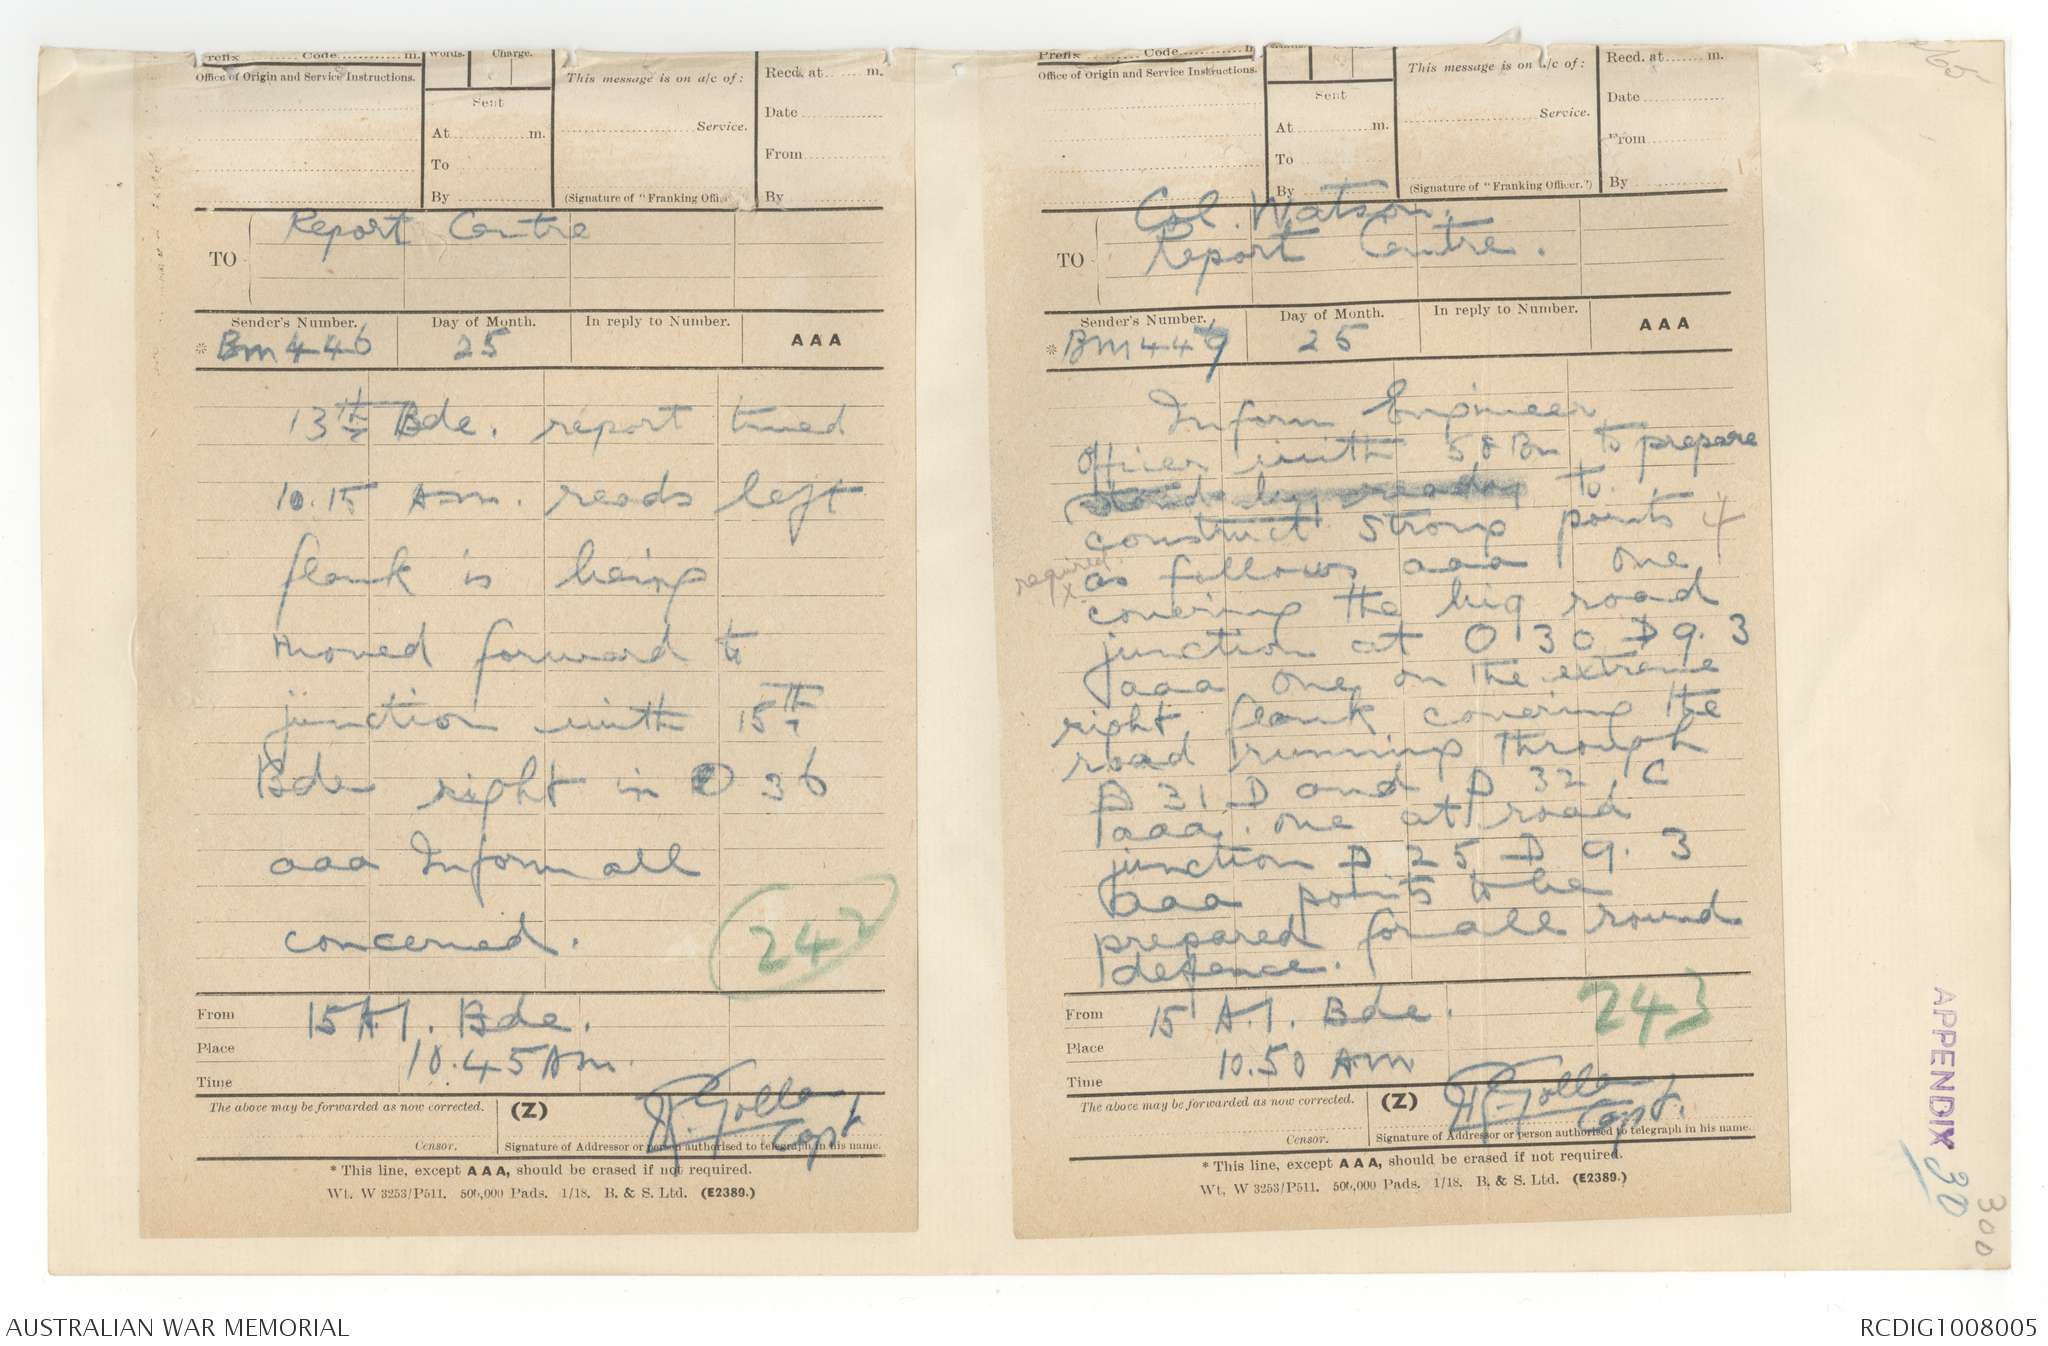 Prefix ........ Code ............ m.
Words. Charge.
Office of Origin and Service Instructions.
Sent
At ............ m.
To
By
This message is on a/c of:
Service.
(Signature of "Franking Offi
Recd. at ....... m.
Date
From
By
TO
Report Centre
Sender's Number. Day of Month. In reply to Number. AAA
* BM446 25
13th Bde. report timed
10.15 AM. reads left
flank is being
moved forward to
junction with 15th
Bde right in O 36
aaa Inform all
concerned.
242
From 15 A.I. Bde.
Place
10.45 AM.
Time
The above may be forwarded as now corrected. (Z)
Capt
Censor. Signature of Addressor or person authorised to telegraph in his name.
* This line, except AAA, should be erased if not required.
Wt. W 3253/P511. 500,000 Pads. 1/18. B. & S. Ltd. (E2389.)
Prefix ........ Code ............
Office of Origin and Service Instructions.
Sent
At ............ m.
To
By
This message is on a/c of:
Service.
(Signature of "Franking Officer.")
Recd. at ....... m.
Date
From
By
Col. Watson.
TO
Report Centre.
Sender's Number. Day of Month. In reply to Number. AAA
* BM449 25
Inform Engineer
Officer with 58 Bn to prepare
stand by ready to
construct strong points 4
required
as follows aaa one
X
covering the big road
junction at O 30 D 9.3
aaa one on the extreme
right flank covering the
road running through
P 31 D and P 32 C
aaa. one at road
junction P 25 D 9.3
aaa points to be
prepared for all round
defence.
From 15 A.I. Bde.
243
Place
10.50 AM
Time
The above may be forwarded as now corrected. (Z)
Capt.
Censor. Signature of Addressor or person authorised to telegraph in his name.
* This line, except AAA, should be erased if not required.
Wt. W 3253/P511. 500,000 Pads. 1/18. B. & S. Ltd. (E2389.)
APPENDIX 30
300
AUSTRALIAN WAR MEMORIAL
RCDIG1008005